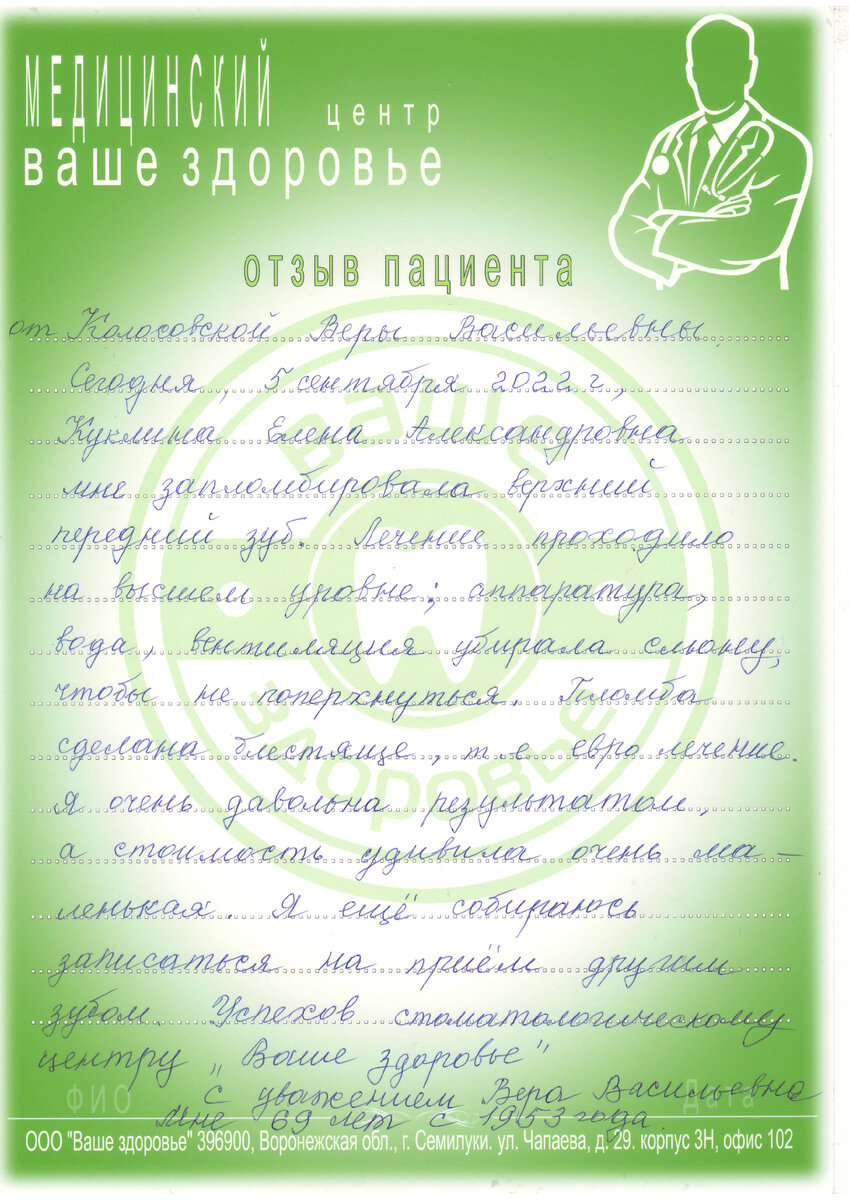 МЕДИЦИНСКИЙ центр
ваше здоровье
отзыв пациента
от Колосовской Веры Васильевны.
Сегодня, 5 сентября 2022 г,
Куклина Елена Александровна
мне запломбировала верхний
передний зуб. Лечение проходило
на высшем уровне; аппаратура,
вода, вентиляция убирала слюну,
чтобы не поперхнуться. Пломба
сделана блестяще, т.е евро лечение.
Я очень давольна результатом,
а стоимость удивила очень ма–
ленькая. Я ещё собираюсь
записаться на приём другим
зубом. Успехов стоматологическому
центру „Ваше здоровье"
С уважением Вера Васильевна
ФИО Дата
Мне 69 лет с 1953 года.
ООО "Ваше здоровье" 396900, Воронежская обл., г. Семилуки. ул. Чапаева, д. 29. корпус 3Н, офис 102
ВАШЕ
ЗДОРОВЬЕ